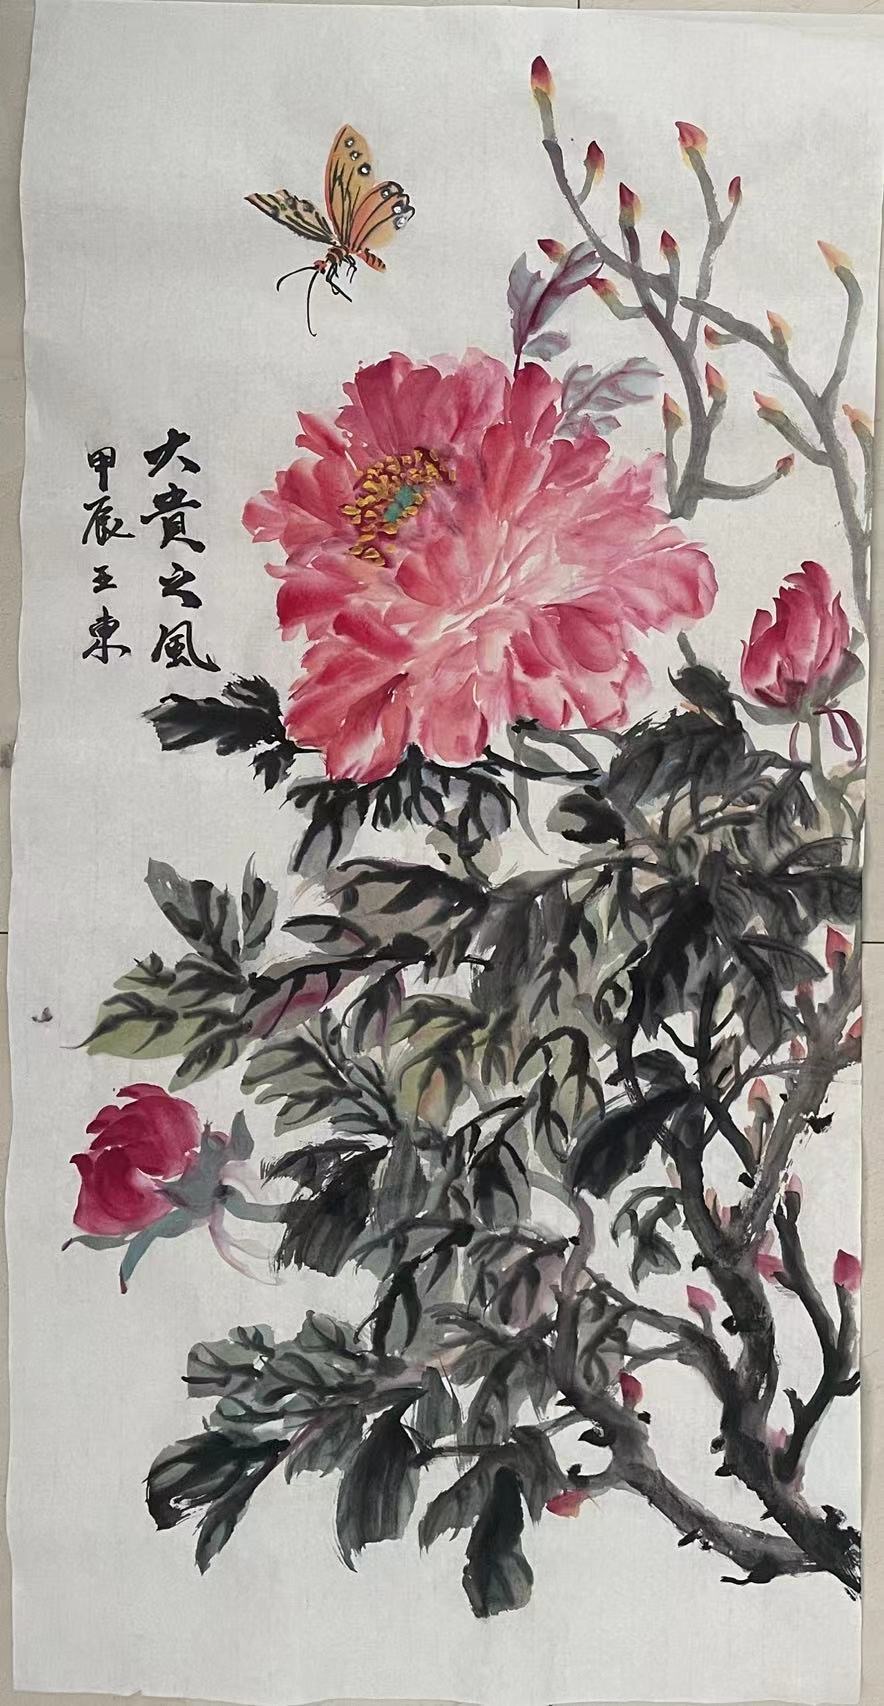 大貴之風
甲辰王東